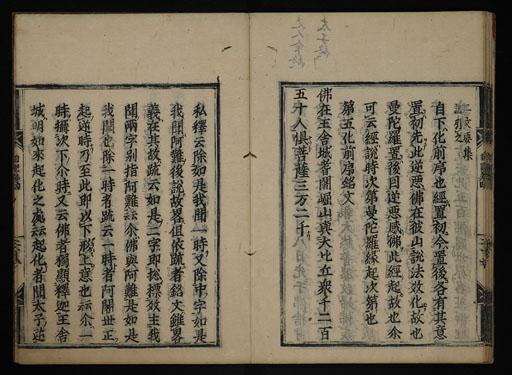 自下化前序也經置初今置後各有其意
置初先此逆惡佛在彼山說法欲化故也
曼陀羅置後因逆惡感佛此經起故也尒
可云經說時次第曼陀羅緣起次第也
第五化前序銘文
佛在王舍城耆闍崛山與大比丘衆千二百
五十人俱菩薩三万二千
私釋云除如是我聞一時又除中字如是
我聞阿難後說故畧但依疏者銘文雖畧
義在其故疏云如是二字即捴標敎主我
聞兩字別指阿難云佛與阿難是如是
我聞也除一時者疏云一時者阿闍世正
起逆時乃至此即以下形上意也云一
時攝次下尒時又云佛者獨顯釋迦王舍
城明如來起化之處云起化者闍太子逆